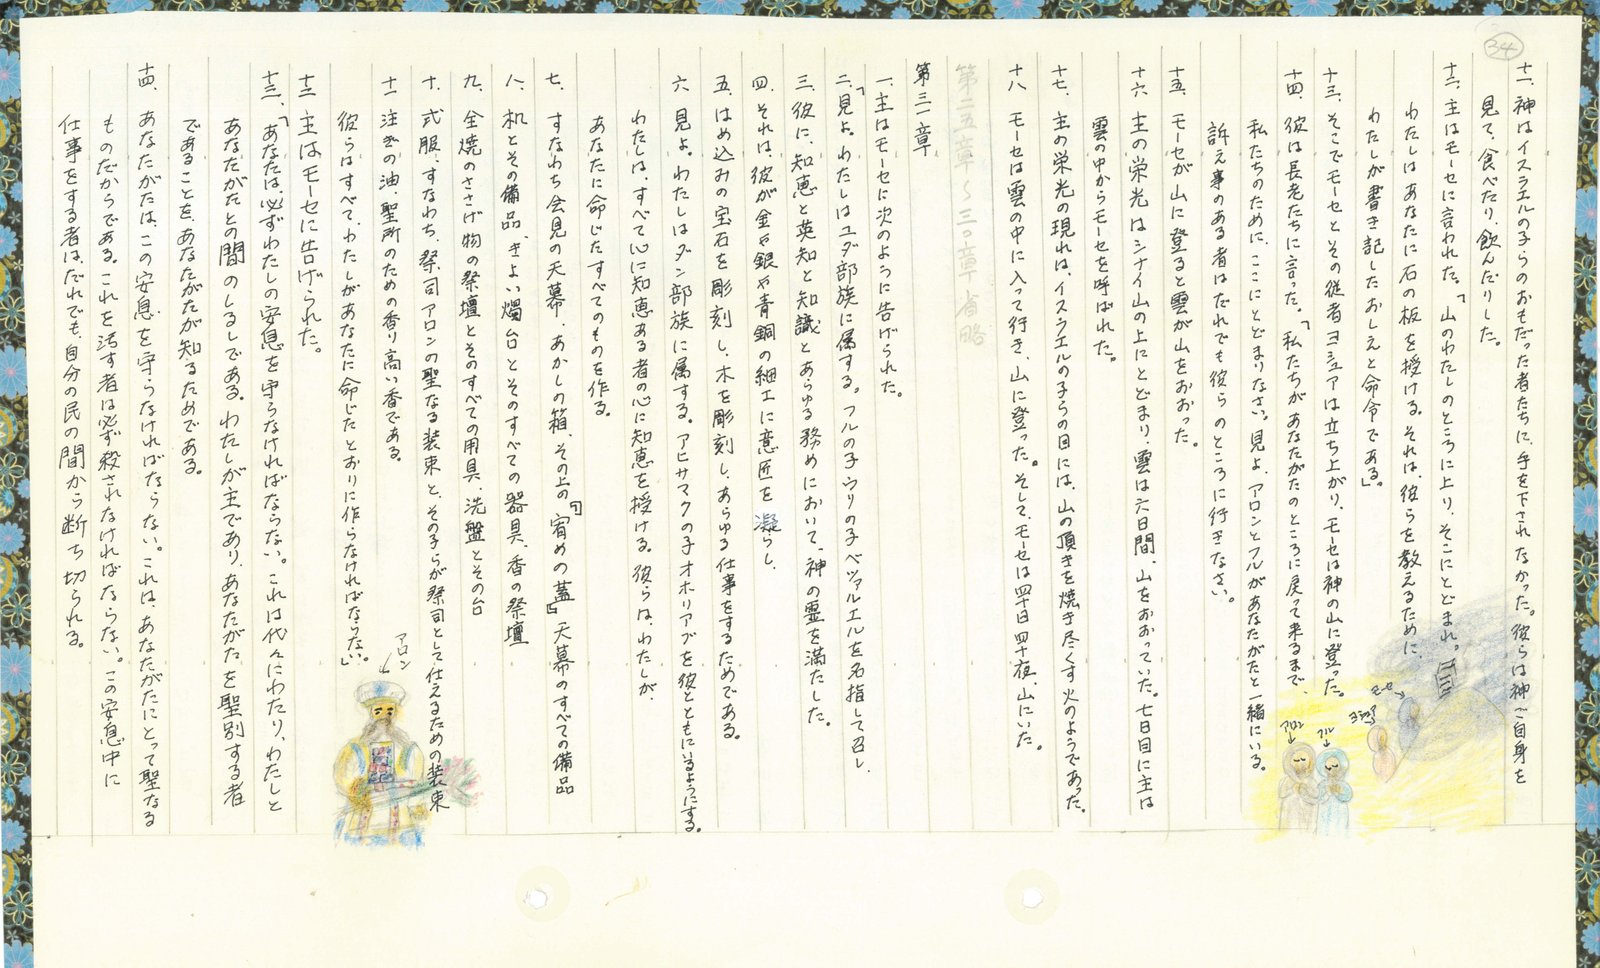 34
十一、神はイスラエルの子らのおもだった者たちに、手を下されなかった。彼らは神ご自身を
見て、食べたり、飲んだりした。
十二、主はモーセに言われた。「山のわたしのところに上り、そこにとどまれ。
わたしはあなたに石の板を授ける。それは、彼らを教えるために
わたしが書き記したおしえと命令である」。
十三、そこでモーセとその従者ヨシュアは立ち上がり、モーセは神の山に登った。
十四、彼は長老たちに言った。「私たちがあなたがたのところに戻って来るまで、
私たちのために、ここにとどまりなさい。見よ、アロンとフルがあなたがたと一緒にいる。
訴え事のある者はだれでも彼らのところに行きなさい。
十五、モーセが山に登ると雲が山をおおった。
十六、主の栄光はシナイ山の上にとどまり、雲は六日間、山をおおっていた。七日目に主は
雲の中からモーセを呼ばれた。
十七、主の栄光の現れは、イスラエルの子らの目には、山の頂きを焼き尽くす火のようであった。
十八、モーセは雲の中に入って行き、山に登った。そして、モーセは四十日四十夜、山にいた。
モーセ
ヨシュア
フル
アロン
第二五章〜三〇章省略
第三一章
一、主はモーセに次のように告げられた。
二、「見よ。わたしはユダ部族に属する。フルの子ウリの子ベツァルエルを名指して召し、
三、彼に、知恵と英知と知識とあらゆる務めにおいて、神の霊を満たした。
四、それは、彼が金や銀や青銅の細工に意匠を凝らし、
五、はめ込みの宝石を彫刻し、木を彫刻し、あらゆる仕事をするためである。
六、見よ。わたしはダン部族に属する。アヒサマクの子オホリアブを彼とともにいるようにする。
わたしは、すべて心に知恵ある者の心に知恵を授ける。彼らは、わたしが、
あなたに命じたすべてのものを作る。
七、すなわち会見の天幕、あかしの箱、その上の「宥めの蓋」天幕のすべての備品
八、机とその備品、きよい燭台とそのすべての器具、香の祭壇
九、全焼のささげ物の祭壇とそのすべての用具、洗盤とその台
十、式服、すなわち、祭司アロンの聖なる装束と、その子らが祭司として仕えるための装束
十一、注ぎの油、聖所のための香り高い香である。
彼らはすべて、わたしがあなたに命じたとおりに作らなければならない。」
アロン
十二、主はモーセに告げられた。
十三、「あなたは、必ずわたしの安息を守らなければならない。これは代々にわたり、わたしと
あなたがたとの間のしるしである。わたしが主であり、あなたがたを聖別する者
であることを、あなたがたが知るためである。
十四、あなたがたは、この安息を守らなければならない。これは、あなたがたにとって聖なる
ものだからである。これを汚す者は必ず殺されなければならない。この安息中に
仕事をする者は、だれでも、自分の民の間から断ち切られる。